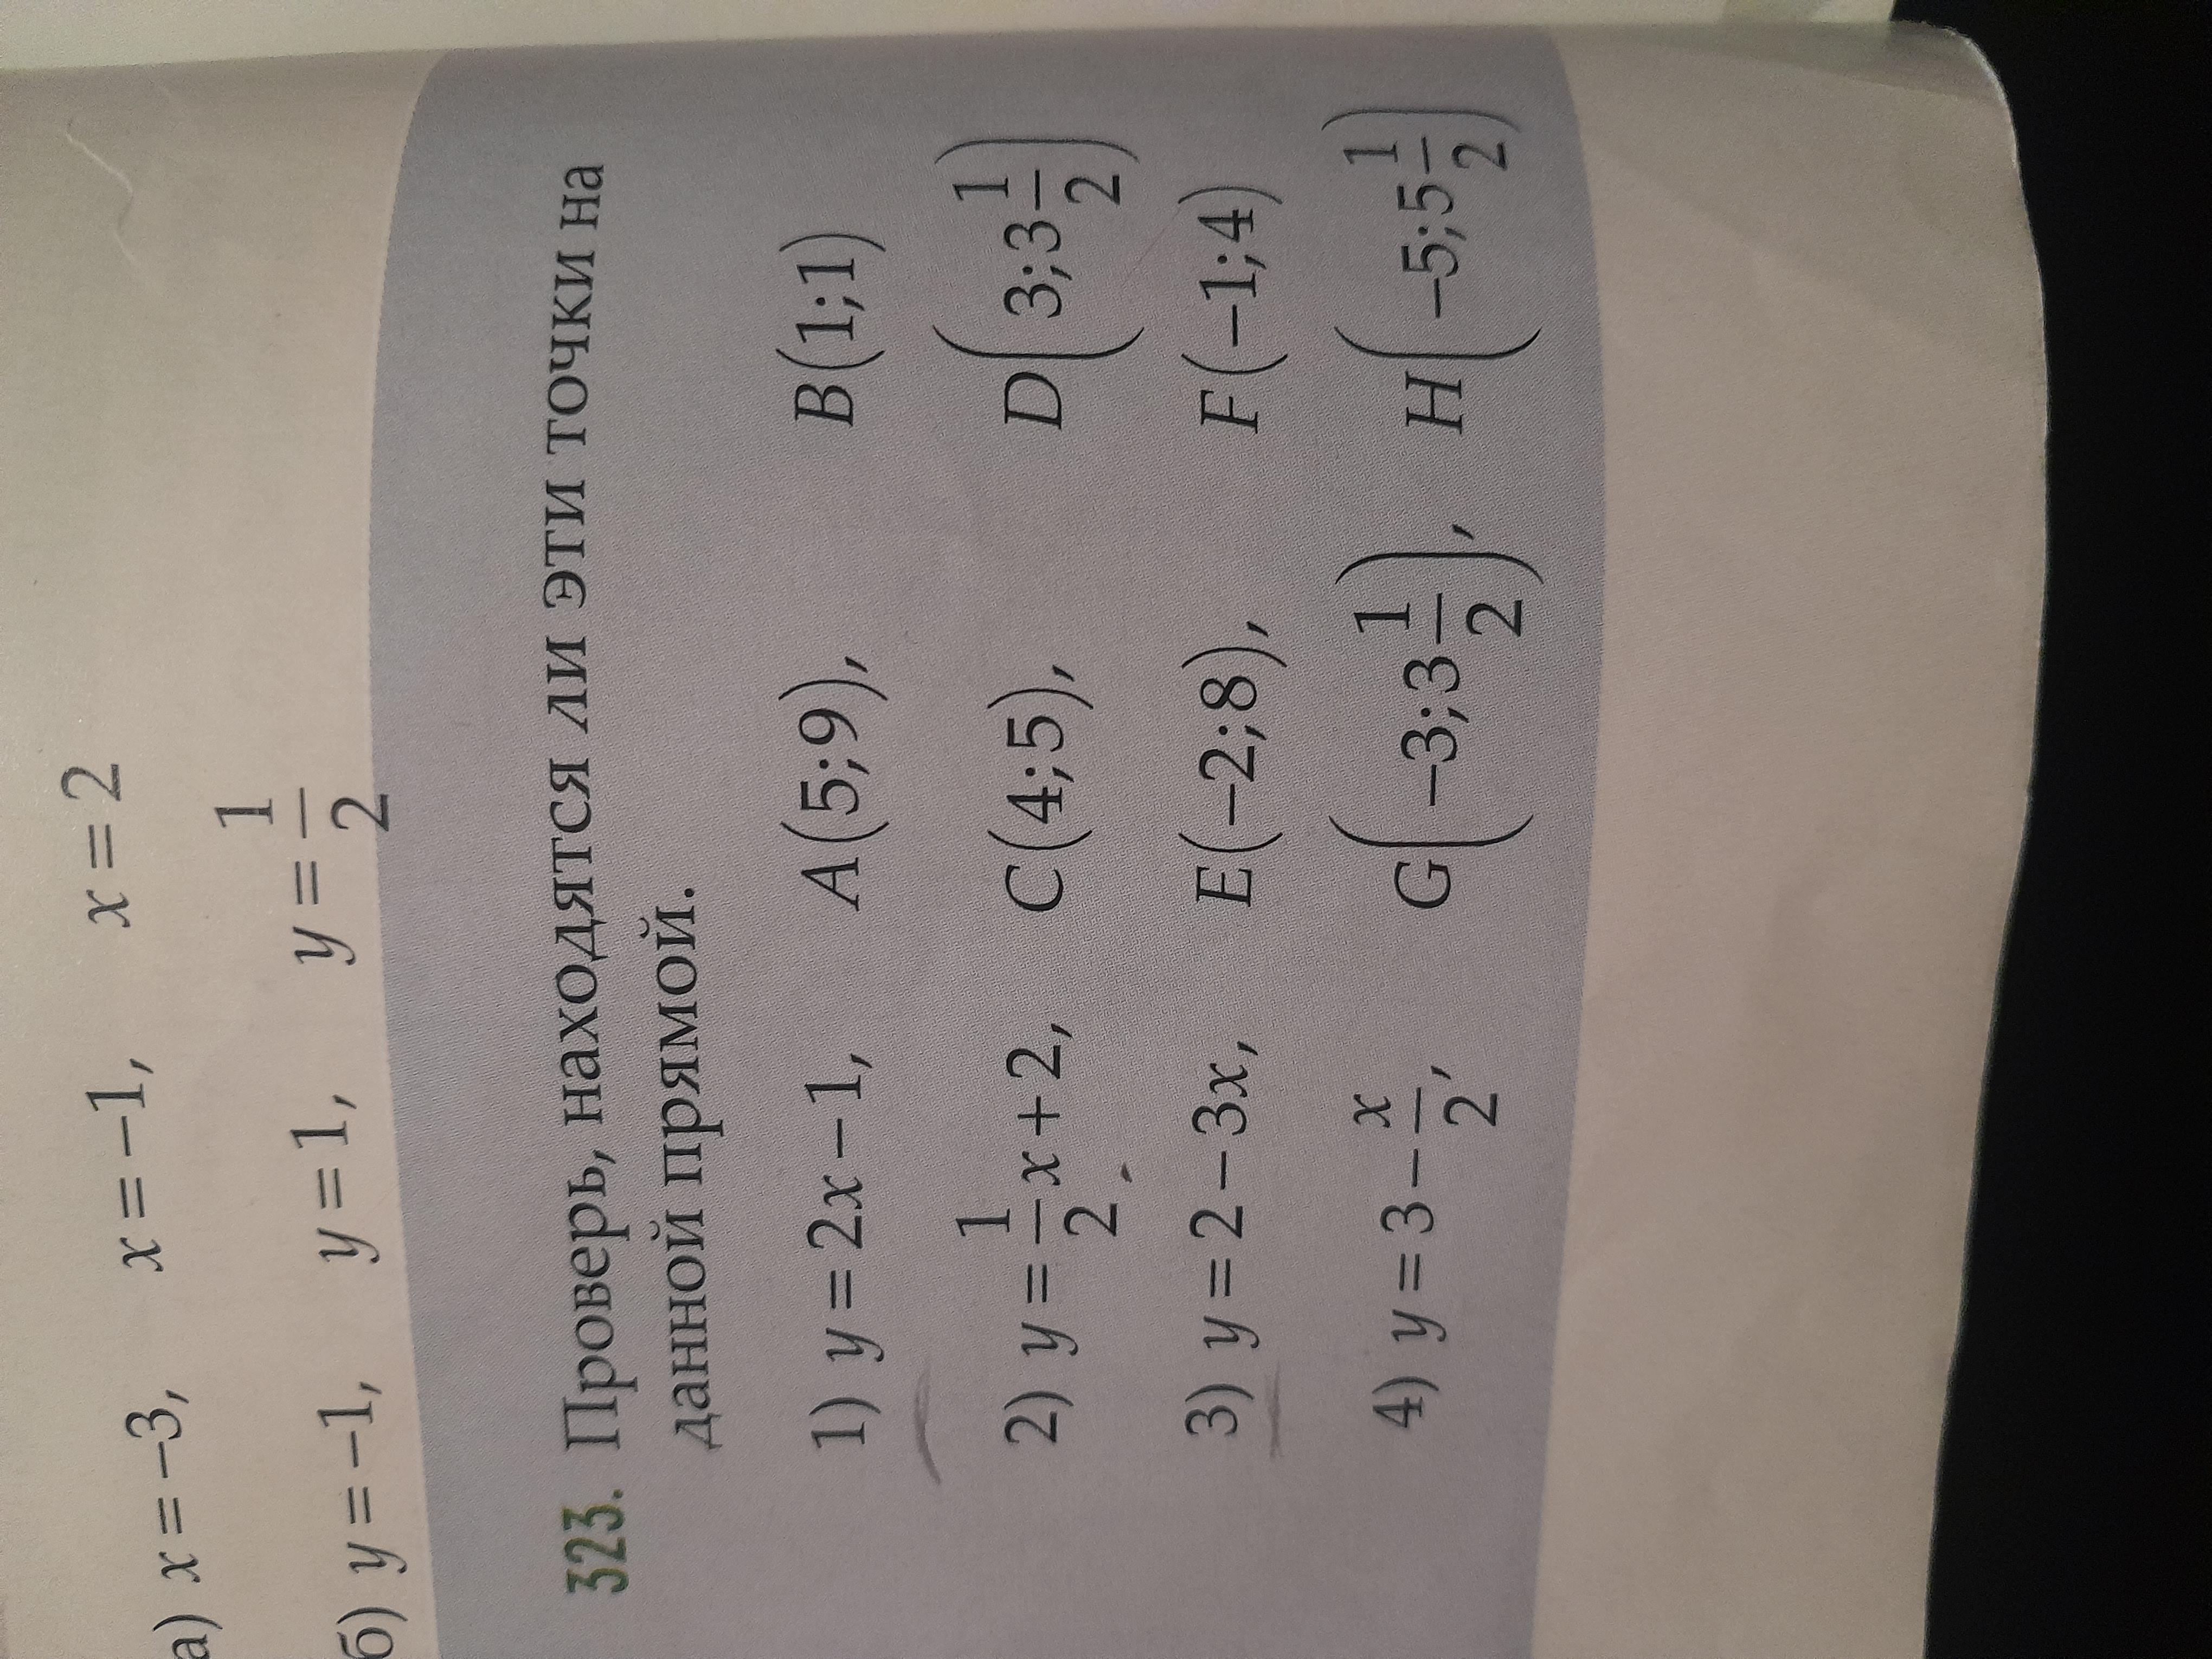 а) x = −3, x = −1, x = 2
б) y = −1, y = 1, y = 1/2
323. Проверь, находятся ли эти точки на
данной прямой.
1) y = 2x − 1, A(5;9), B(1;1)
2) y = 1/2 x + 2, C(4;5), D(3;3 1/2)
3) y = 2 − 3x, E(−2;8), F(−1;4)
4) y = 3 − x/2, G(−3;3 1/2), H(−5;5 1/2)